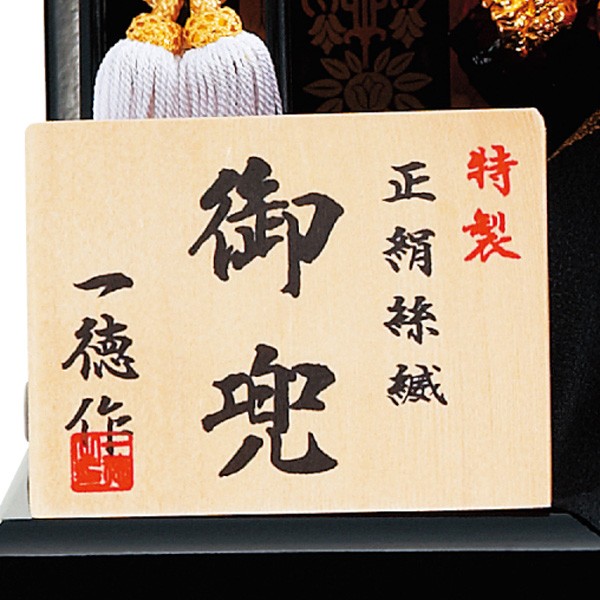 特製
正絹絲縅
御兜
一徳作